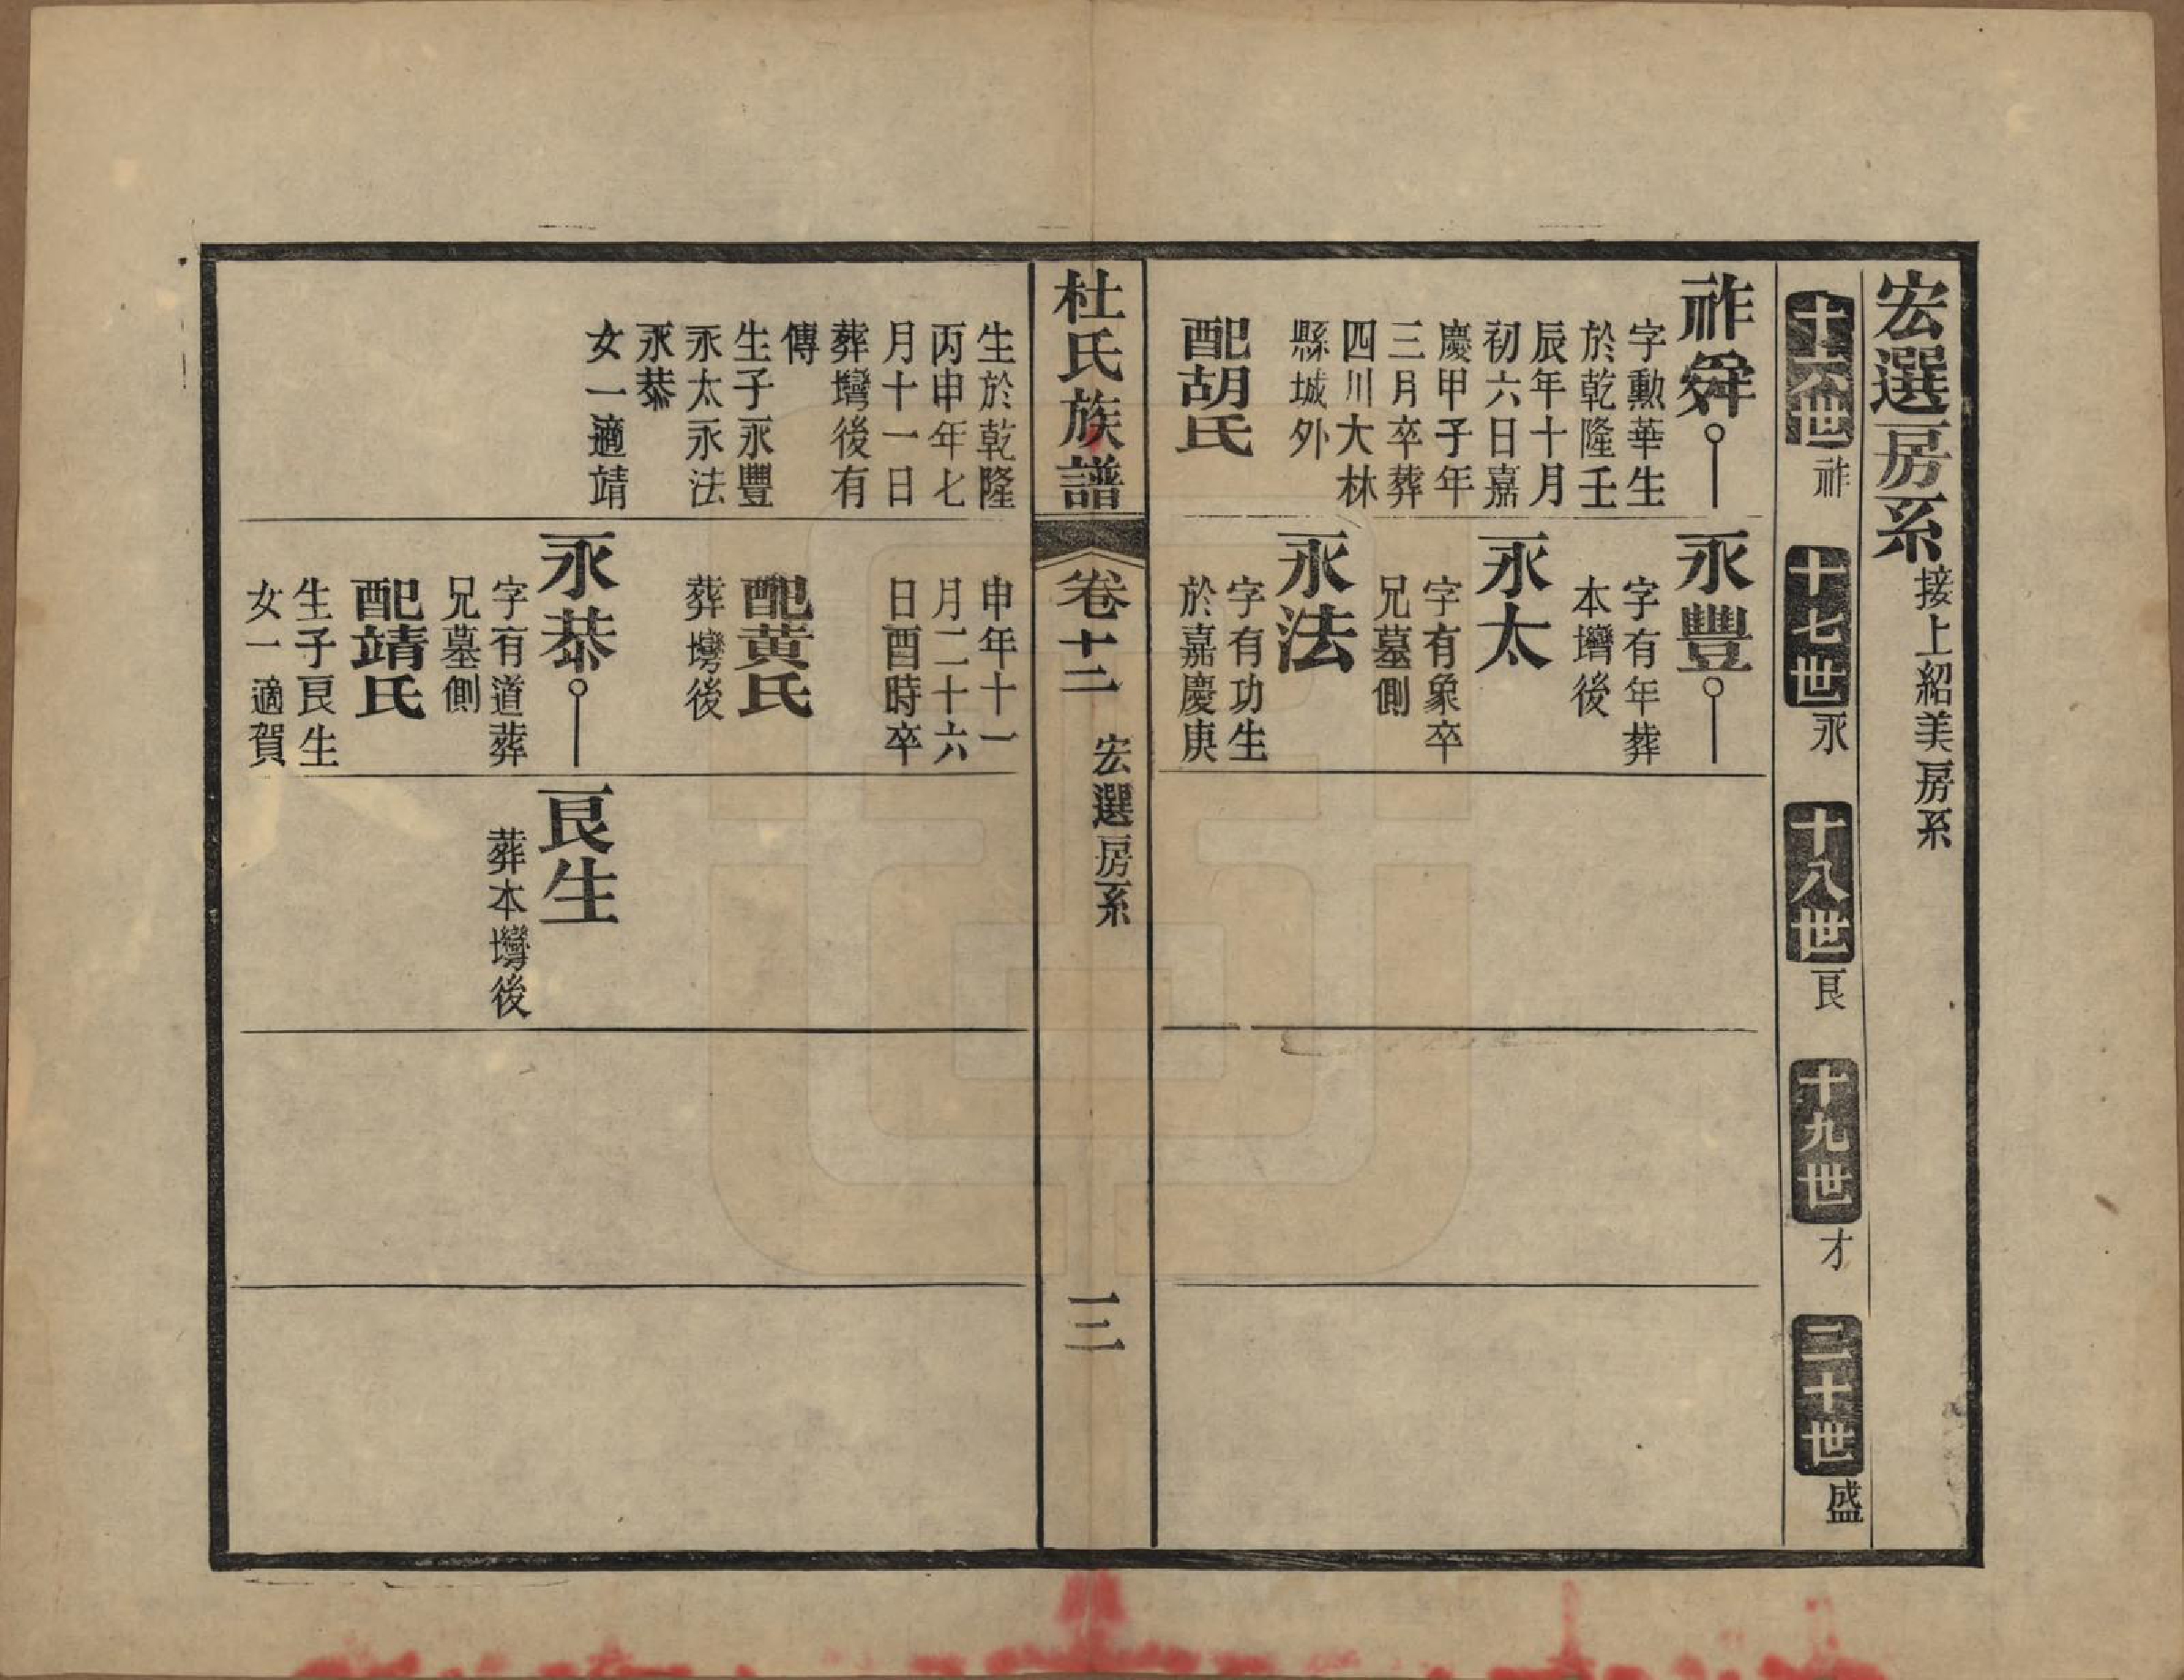 宏選房系接上紹美房系
十六世祚
十七世永
十八世良
十九世才
二十世盛
祚舜
字勳華生
於乾隆壬
辰年十月
初六日嘉
慶甲子年
三月卒葬
四川大林
縣城外
配胡氏
永豐
字有年葬
本塆後
永太
字有象卒
兄墓側
永法
字有功生
於嘉慶庚
杜氏族譜
卷十二
宏選房系
三
生於乾隆
丙申年七
月十一日
葬塆後有
傳
生子永豐
永太永法
永恭
女一適靖
申年十一
月二十六
日酉時卒
配黃氏
葬塆後
永恭
字有道葬
兄墓側
配靖氏
生子良生
女一適賀
良生
葬本塆後